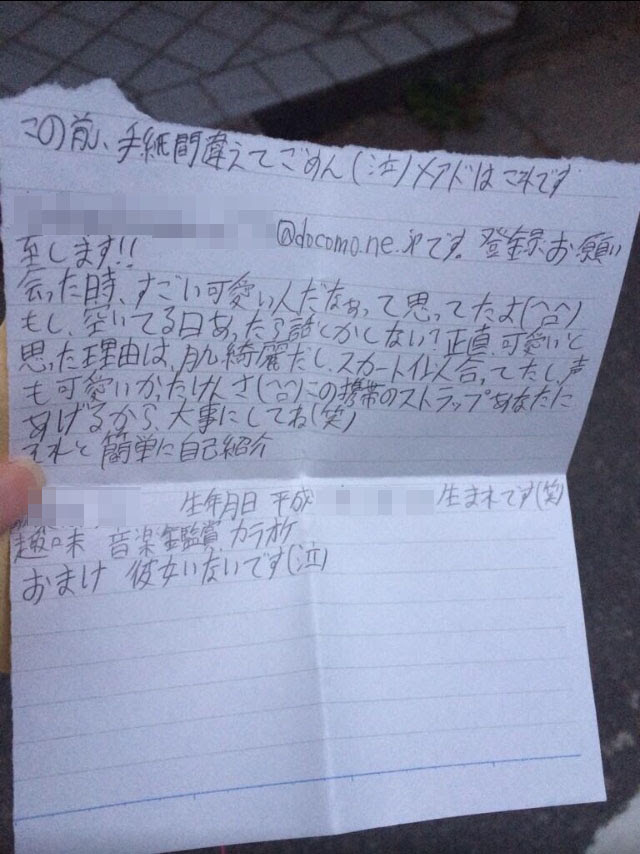 この前、手紙間違えてごめん(泣)メアドはこれです
@docomo.ne.jpです。登録お願い
至します!!
会った時、すごい可愛い人だなぁって思ってたよ(^^)
もし、空いてる日あったら話とかしない?正直、可愛いと
思った理由は、肌綺麗だし、スカート似合ってたし、声
も可愛いかったけんさ(^^)この携帯のストラップあなたに
あげるから、大事にしてね(笑)
それと簡単に自己紹介
生年月日 平成 生まれです(笑)
趣味 音楽鑑賞 カラオケ
おまけ 彼女いないです(泣)